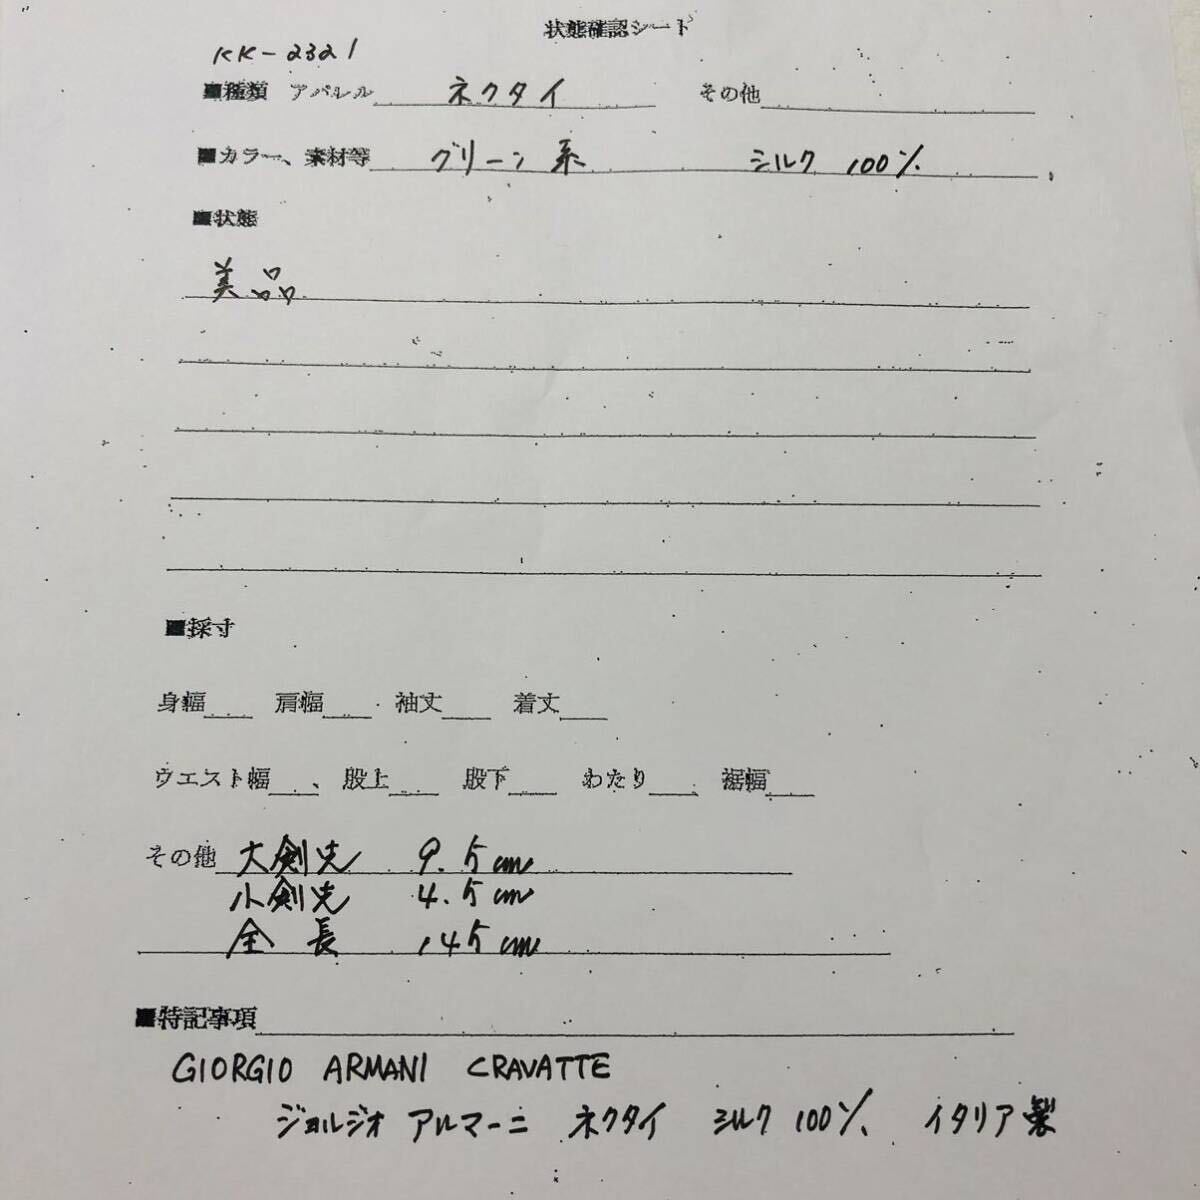 状態確認シート
KK-2321
■種類 アパレル ネクタイ その他
■カラー、素材等 グリーン系 シルク 100%
■状態
美品
■採寸
身幅 肩幅 袖丈 着丈
ウエスト幅 、股上 股下 わたり 裾幅
その他 大剣先 9.5cm
小剣先 4.5cm
全長 145cm
■特記事項
GIORGIO ARMANI CRAVATTE
ジョルジオ アルマーニ ネクタイ シルク 100% イタリア製